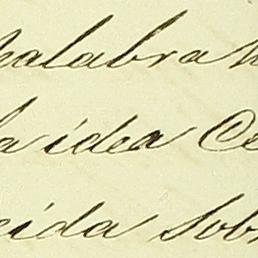 palabra
la idea Ce
eida sobr